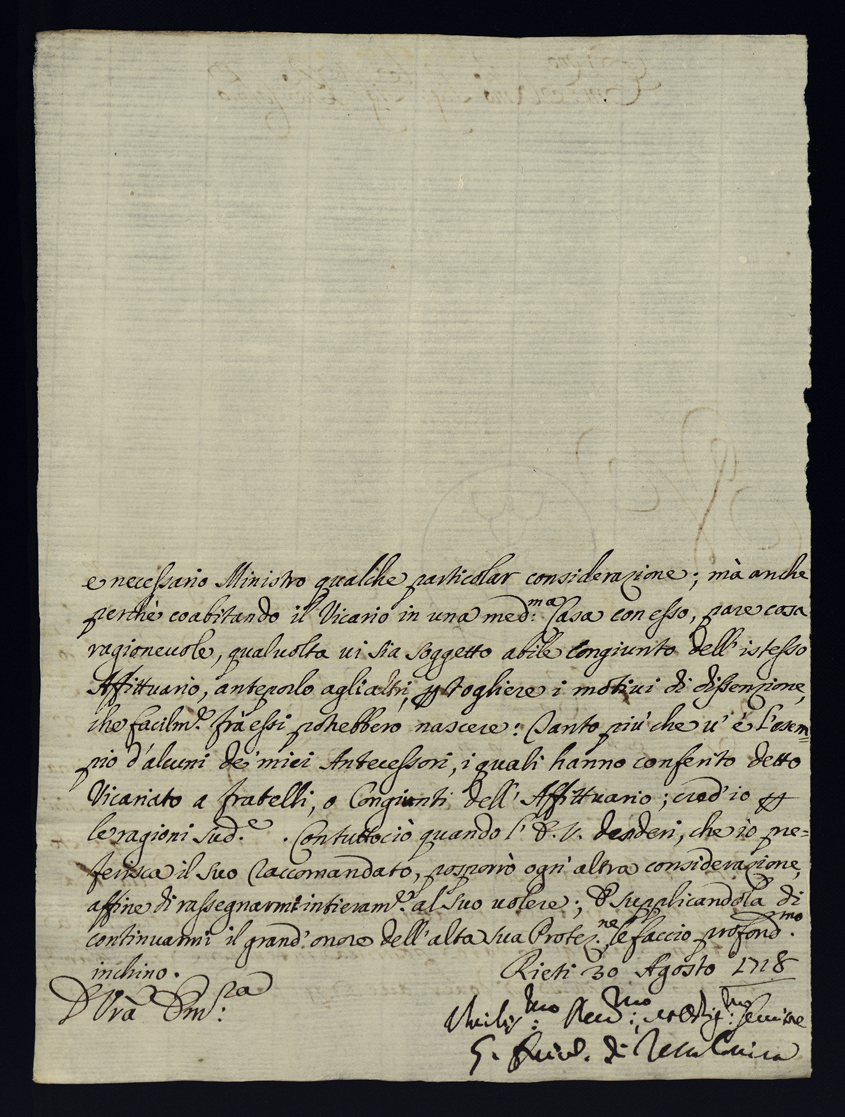 e necessario Ministro qualche particolar considerazione; mà anche
perchè coabitando il Vicario in una med:ma Casa con esso, pare cosa
ragionevole, qualvolta vi sia soggetto abile Congiunto dell' istesso
Affittuario, anteporlo agli altri, p togliere i motivi di dissenzione,
che facilm.e frà essi potrebbero nascere: Tanto più che v' è l'esem=
pio d'alcuni de' miei Antecessori, i quali hanno conferito detto
Vicariato a fratelli, o Congiunti dell' Affittuario; cred' io p
le ragioni sud.e. Contuttociò quando l' E. V. desideri, che io pre=
ferisca il suo raccomandato, posporrò ogn' altra considerazione,
affine di rassegnarmi intieram.e al suo volere; E supplicandola di
continuarmi il grand' onore dell' alta sua Protez:ne le faccio profond.mo
inchino.
Rieti 30 Agosto 1718
D Vrà Em:za
Umiliss:mo Dev:mo et Oblig:mo servitore
di